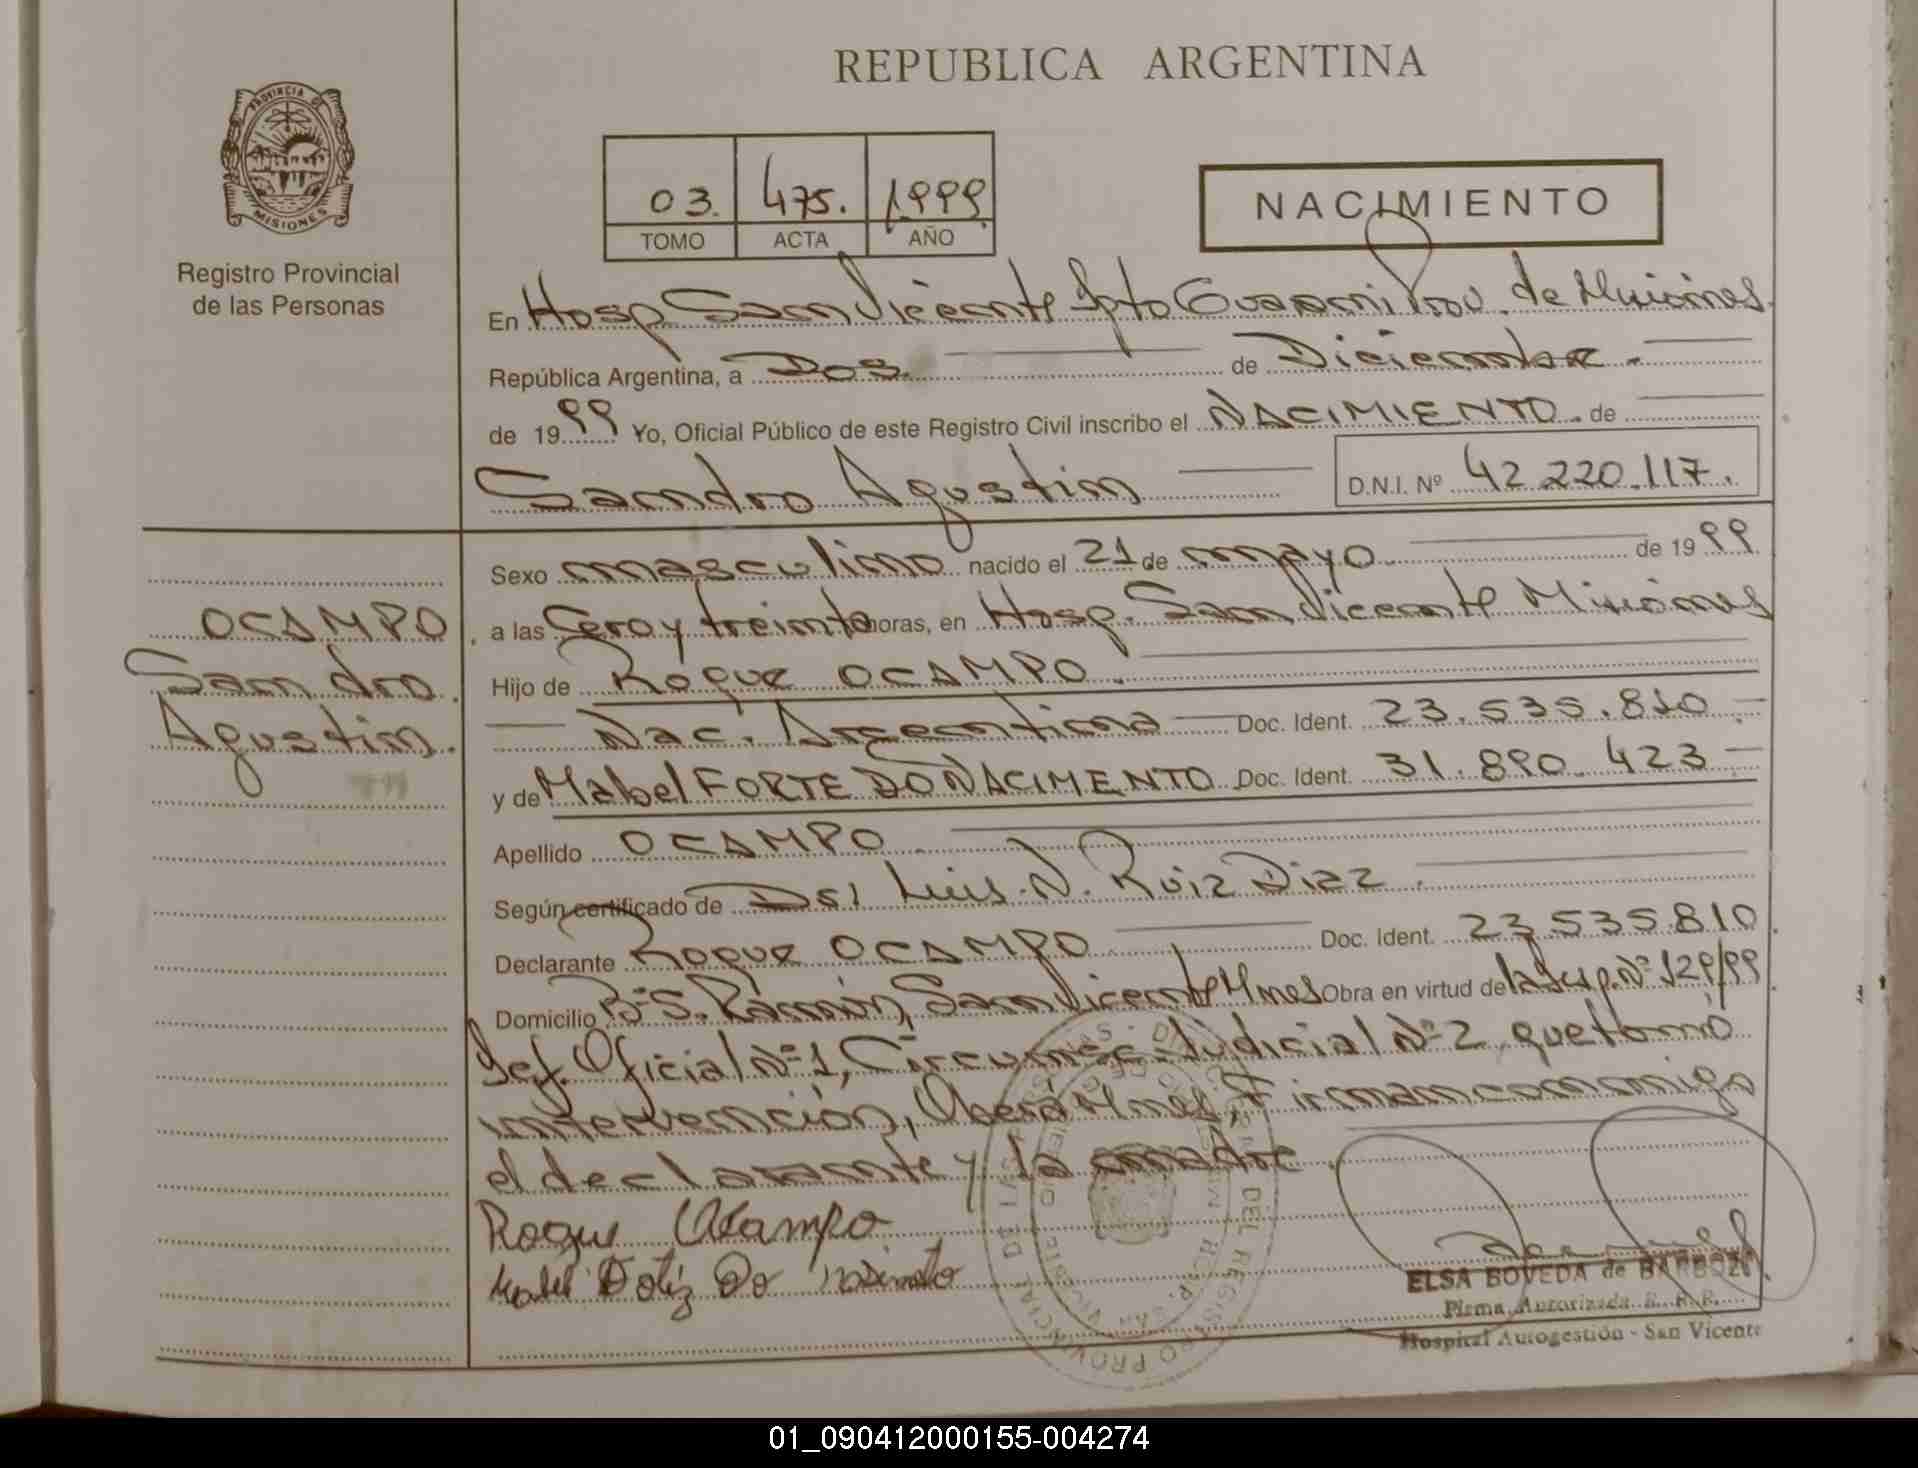 REPUBLICA ARGENTINA
PROVINCIA DE
MISIONES
Registro Provincial
de las Personas
03. 475. 1999
TOMO ACTA AÑO
NACIMIENTO
En Hosp San Vicente Dpto Guarani Prov. de Misiones.
República Argentina, a Dos de Diciembre.
de 1999 Yo, Oficial Público de este Registro Civil inscribo el NACIMIENTO. de
Sandro Agustin D.N.I. Nº 42 220.117.
Sexo masculino nacido el 21 de mayo de 1999
a las Cero y treinta horas, en Hosp. San Vicente Misiones
Hijo de Roque OCAMPO.
Nac. Argentina Doc. Ident. 23.535.810
y de Mabel FORTE DO NACIMENTO Doc. Ident. 31.890.423
Apellido OCAMPO
Según certificado de Dr. Luis N. Ruiz Diaz.
Declarante Roque OCAMPO Doc. Ident. 23.535.810
Domicilio Bº S. Ramón, San Vicente Mnes Obra en virtud de la Nº 129/99
Def. Oficial Nº 1, Circunsc. Judicial Nº 2 que tomó
intervención, Oberá Mnes, Firman conmigo
el declarante y la madre.
Roque Ocampo
Mabel Do
OCAMPO
Sandro
Agustin.
ELSA BOVEDA de BARBOZA
Firma Autorizada R. P. P.
Hospital Autogestión - San Vicente
01_090412000155-004274